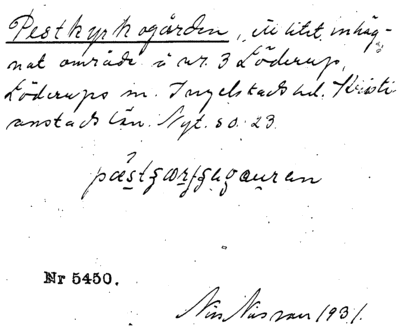 Pestkyrkogården, ett litet inhäg-
nat område å nr. 3 Löderup,
Löderups sn. Ingelstads hd. Kristi
anstads län. Nyt. so. 23.
Nr 5450.
Nils Nilsson 1931.